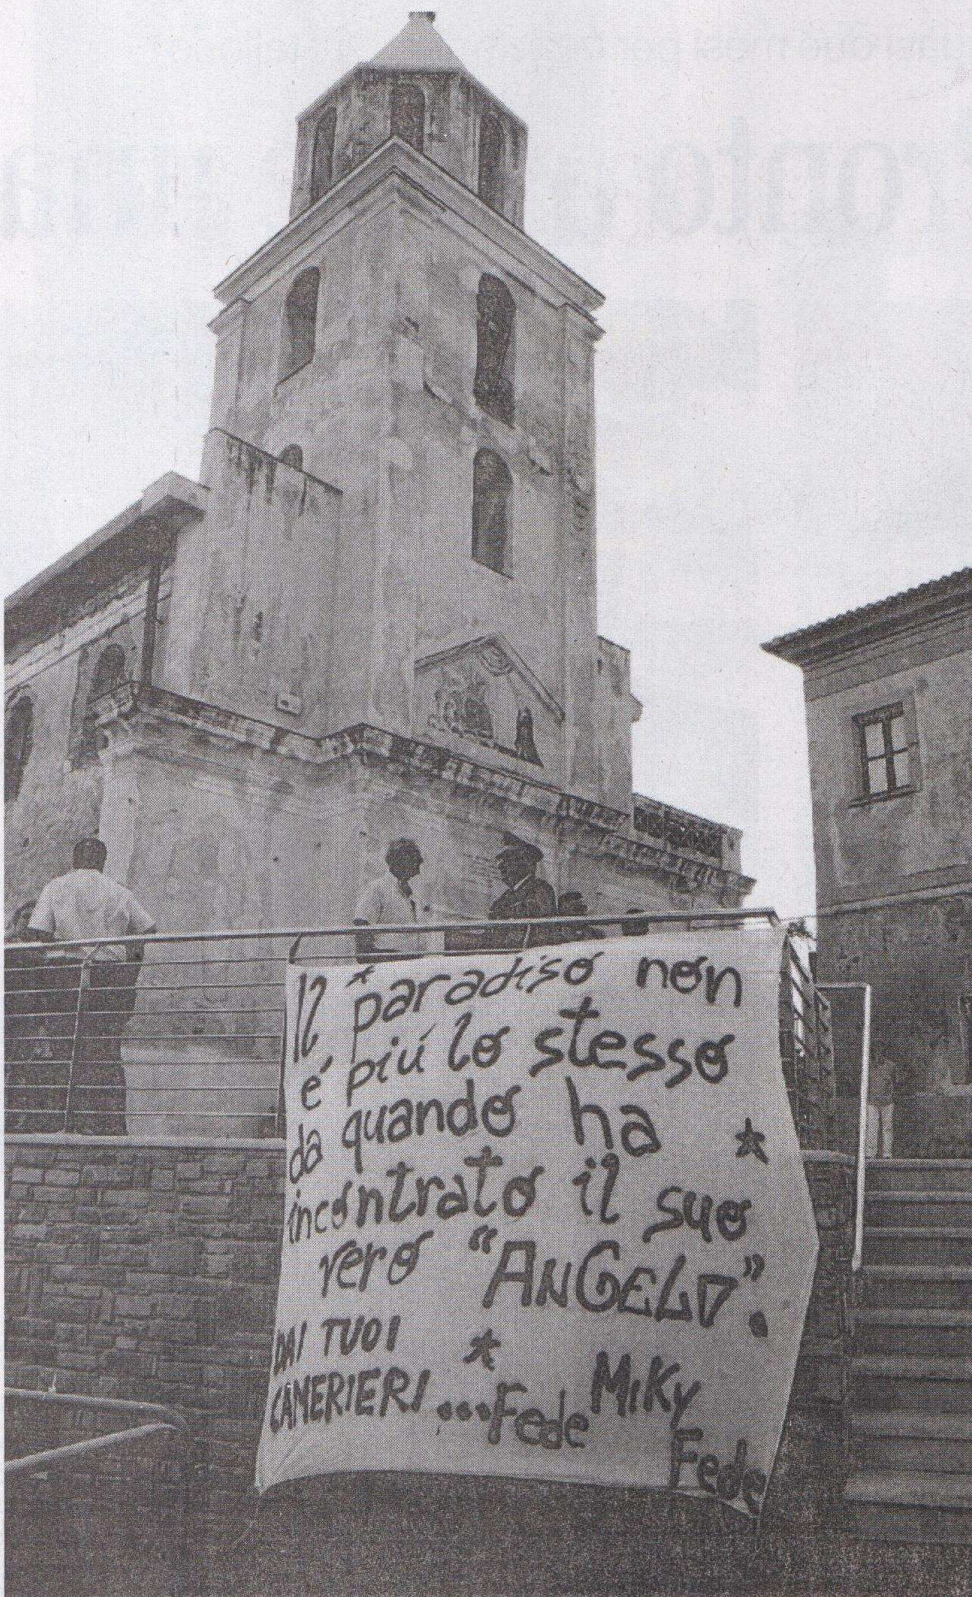 Il paradiso non
é piú lo stesso
da quando ha
incontrato il suo
vero "ANGELO".
DAI TUOI
CAMERIERI ...Fede MIKY
Fede